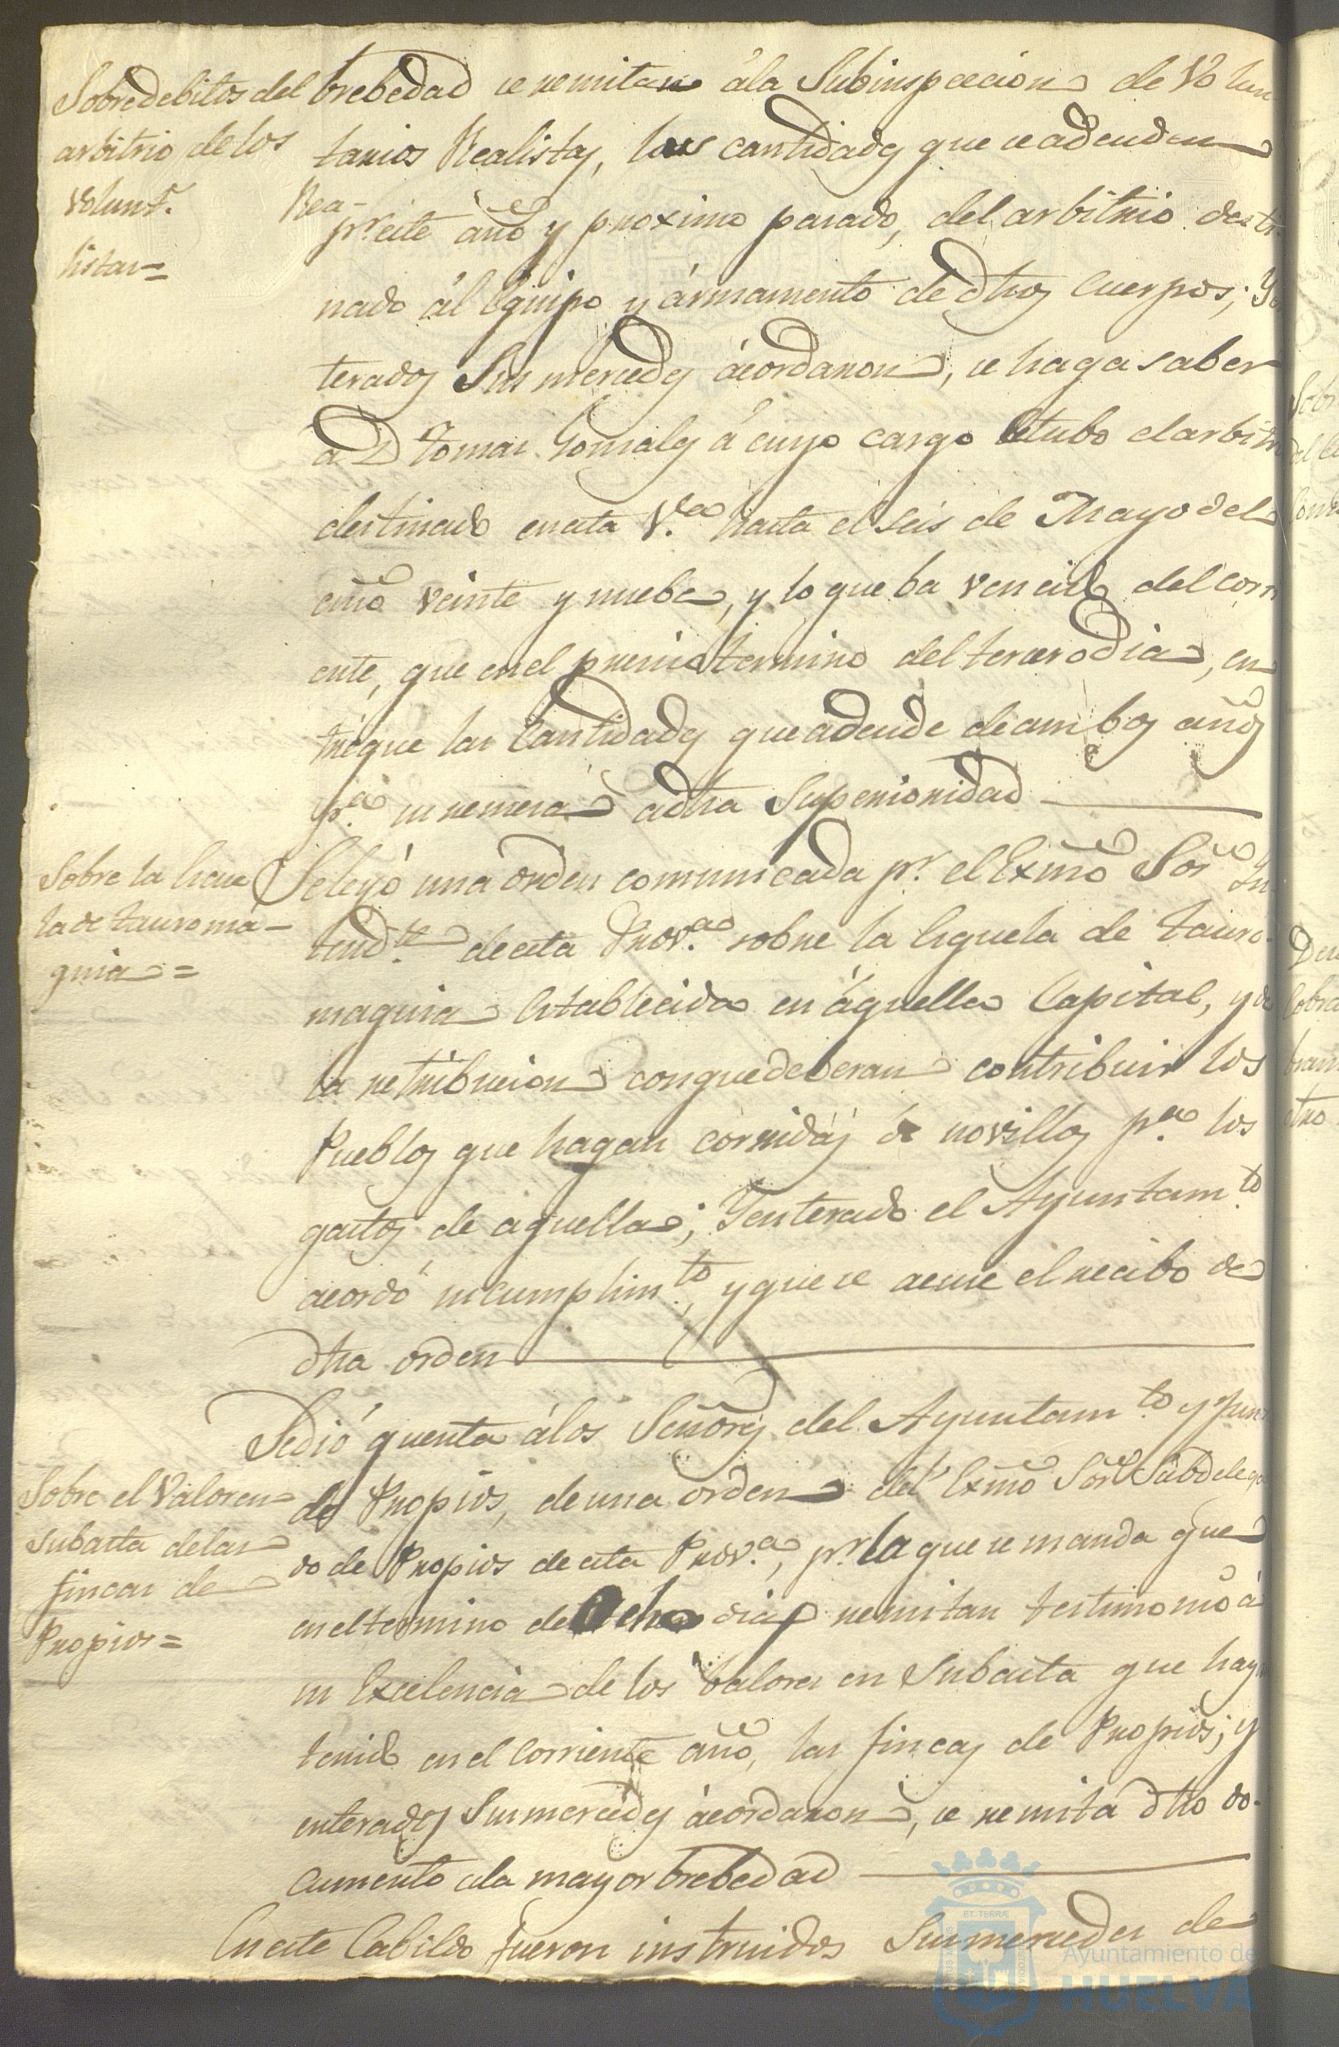 Sobre debitos del
arbitrio de los
Volunt.s Rea-
listas=
brebedad se remitan á la Subinspeccion de Volun-
tarios Realistas, las cantidades que se adeuden
pr. este año y proximo pasado, del arbitrio desti-
nado ál Equipo y ármamento de dhos Cuerpos; Y en
terados Sus mercedes ácordaron, se haga saber
a D Tomas Gonsales á cuyo cargo estubo el arbitrio
destinado en esta V.a hasta el seis de Mayo del
año veinte y nuebe, y lo que ba vencido del corri
ente, que en el preciso termino del tercero dia, en
tregue las Cantidades que adeude de ambos años
p.a su remesa á dha Superioridad
Sobre la Escue
la de tauroma-
quia=
Se leyó una orden comunicada pr. el Exmo Sor In
tend.te de esta Prov.a sobre la Esquela de tauro-
maquia Establecida en áquella Capital, y de
la retribucion con que deberan contribuir los
Pueblos que hagan corridas de novillos p.a los
gastos de aquella; Y enterado el Ayuntam.to
acordó su cumplim.to, y que se acuse el recibo de
dha orden
Sobre el Valor en
subasta de las
fincas de
Propios=
Se dió quenta á los Señores del Ayuntam.to y Jun
de Propios, de una orden del Exmo Sor Subdelega
do de Propios de esta Prov.a, pr. la que se manda que
en el termino de Ocho dias remitan testimonio á
su Excelencia de los Valores en Subasta que hayan
tenido en el corriente año, las fincas de Propios; y
enterados Sus mercedes ácordaron, se remita dho do-
cumento á la mayor brebedad
En este Cabildo fueron instruidos Sus mercedes de
Ayuntamiento de
HUELVA